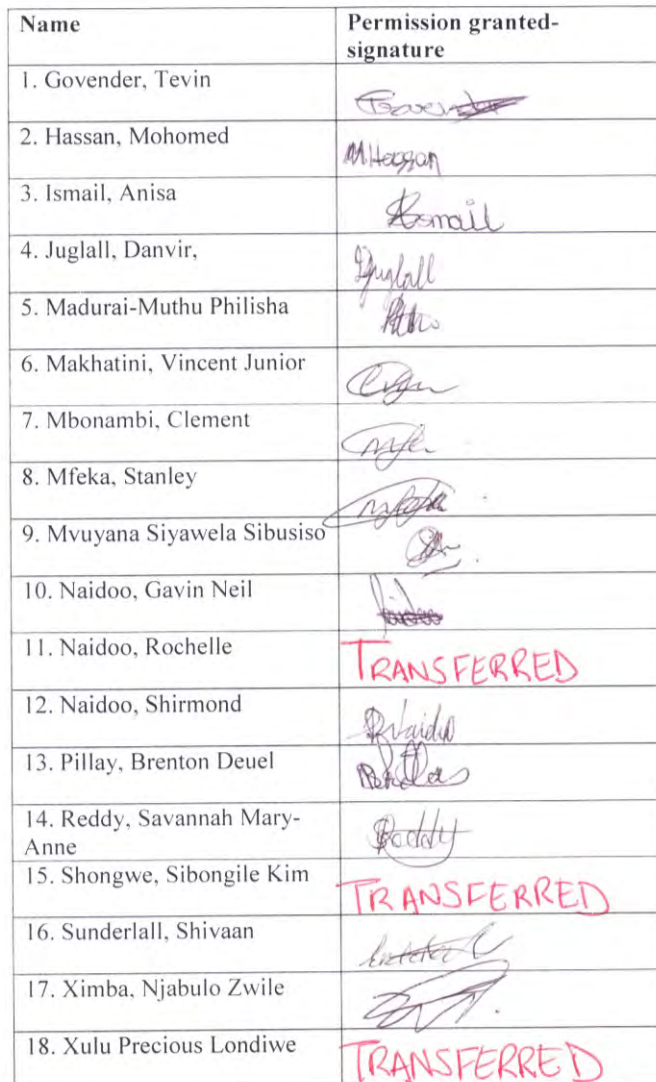 Name
Permission granted-
signature
1. Govender, Tevin
2. Hassan, Mohomed
MHassan
3. Ismail, Anisa
Ismail
4. Juglall, Danvir,
Juglall
5. Madurai-Muthu Philisha
6. Makhatini, Vincent Junior
7. Mbonambi, Clement
8. Mfeka, Stanley
9. Mvuyana Siyawela Sibusiso
10. Naidoo, Gavin Neil
11. Naidoo, Rochelle
TRANSFERRED
12. Naidoo, Shirmond
13. Pillay, Brenton Deuel
14. Reddy, Savannah Mary-
Anne
15. Shongwe, Sibongile Kim
TRANSFERRED
16. Sunderlall, Shivaan
17. Ximba, Njabulo Zwile
18. Xulu Precious Londiwe
TRANSFERRED